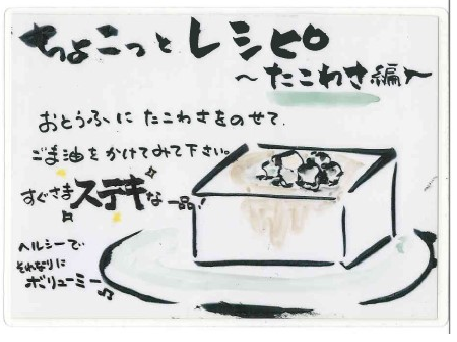 ちょこっとレシピ
～たこわさ編～
おとうふにたこわさをのせて、
ごま油をかけてみて下さい。
すぐさまステキな一品!
ヘルシーで
それなりに
ボリューミー♪